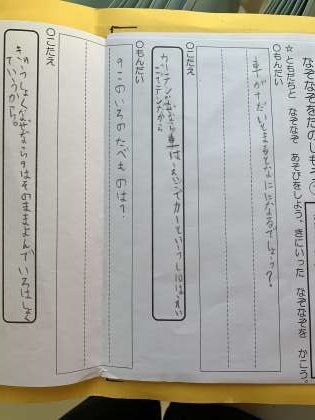 なぞなぞをたのしもう
☆ともだちと なぞなぞ あそびをしよう。きにいった なぞなぞを かこう。
○もんだい
車が十だいとまるとなにになるでしょう?
○こたえ
カーテン
なぜなら車は
えいごでカーといって十はえい
○もんだい
9このいろのたべものは?
○こたえ
きゅうしょくなぜなら9はそのままよんでいろはしょく
ていうから。